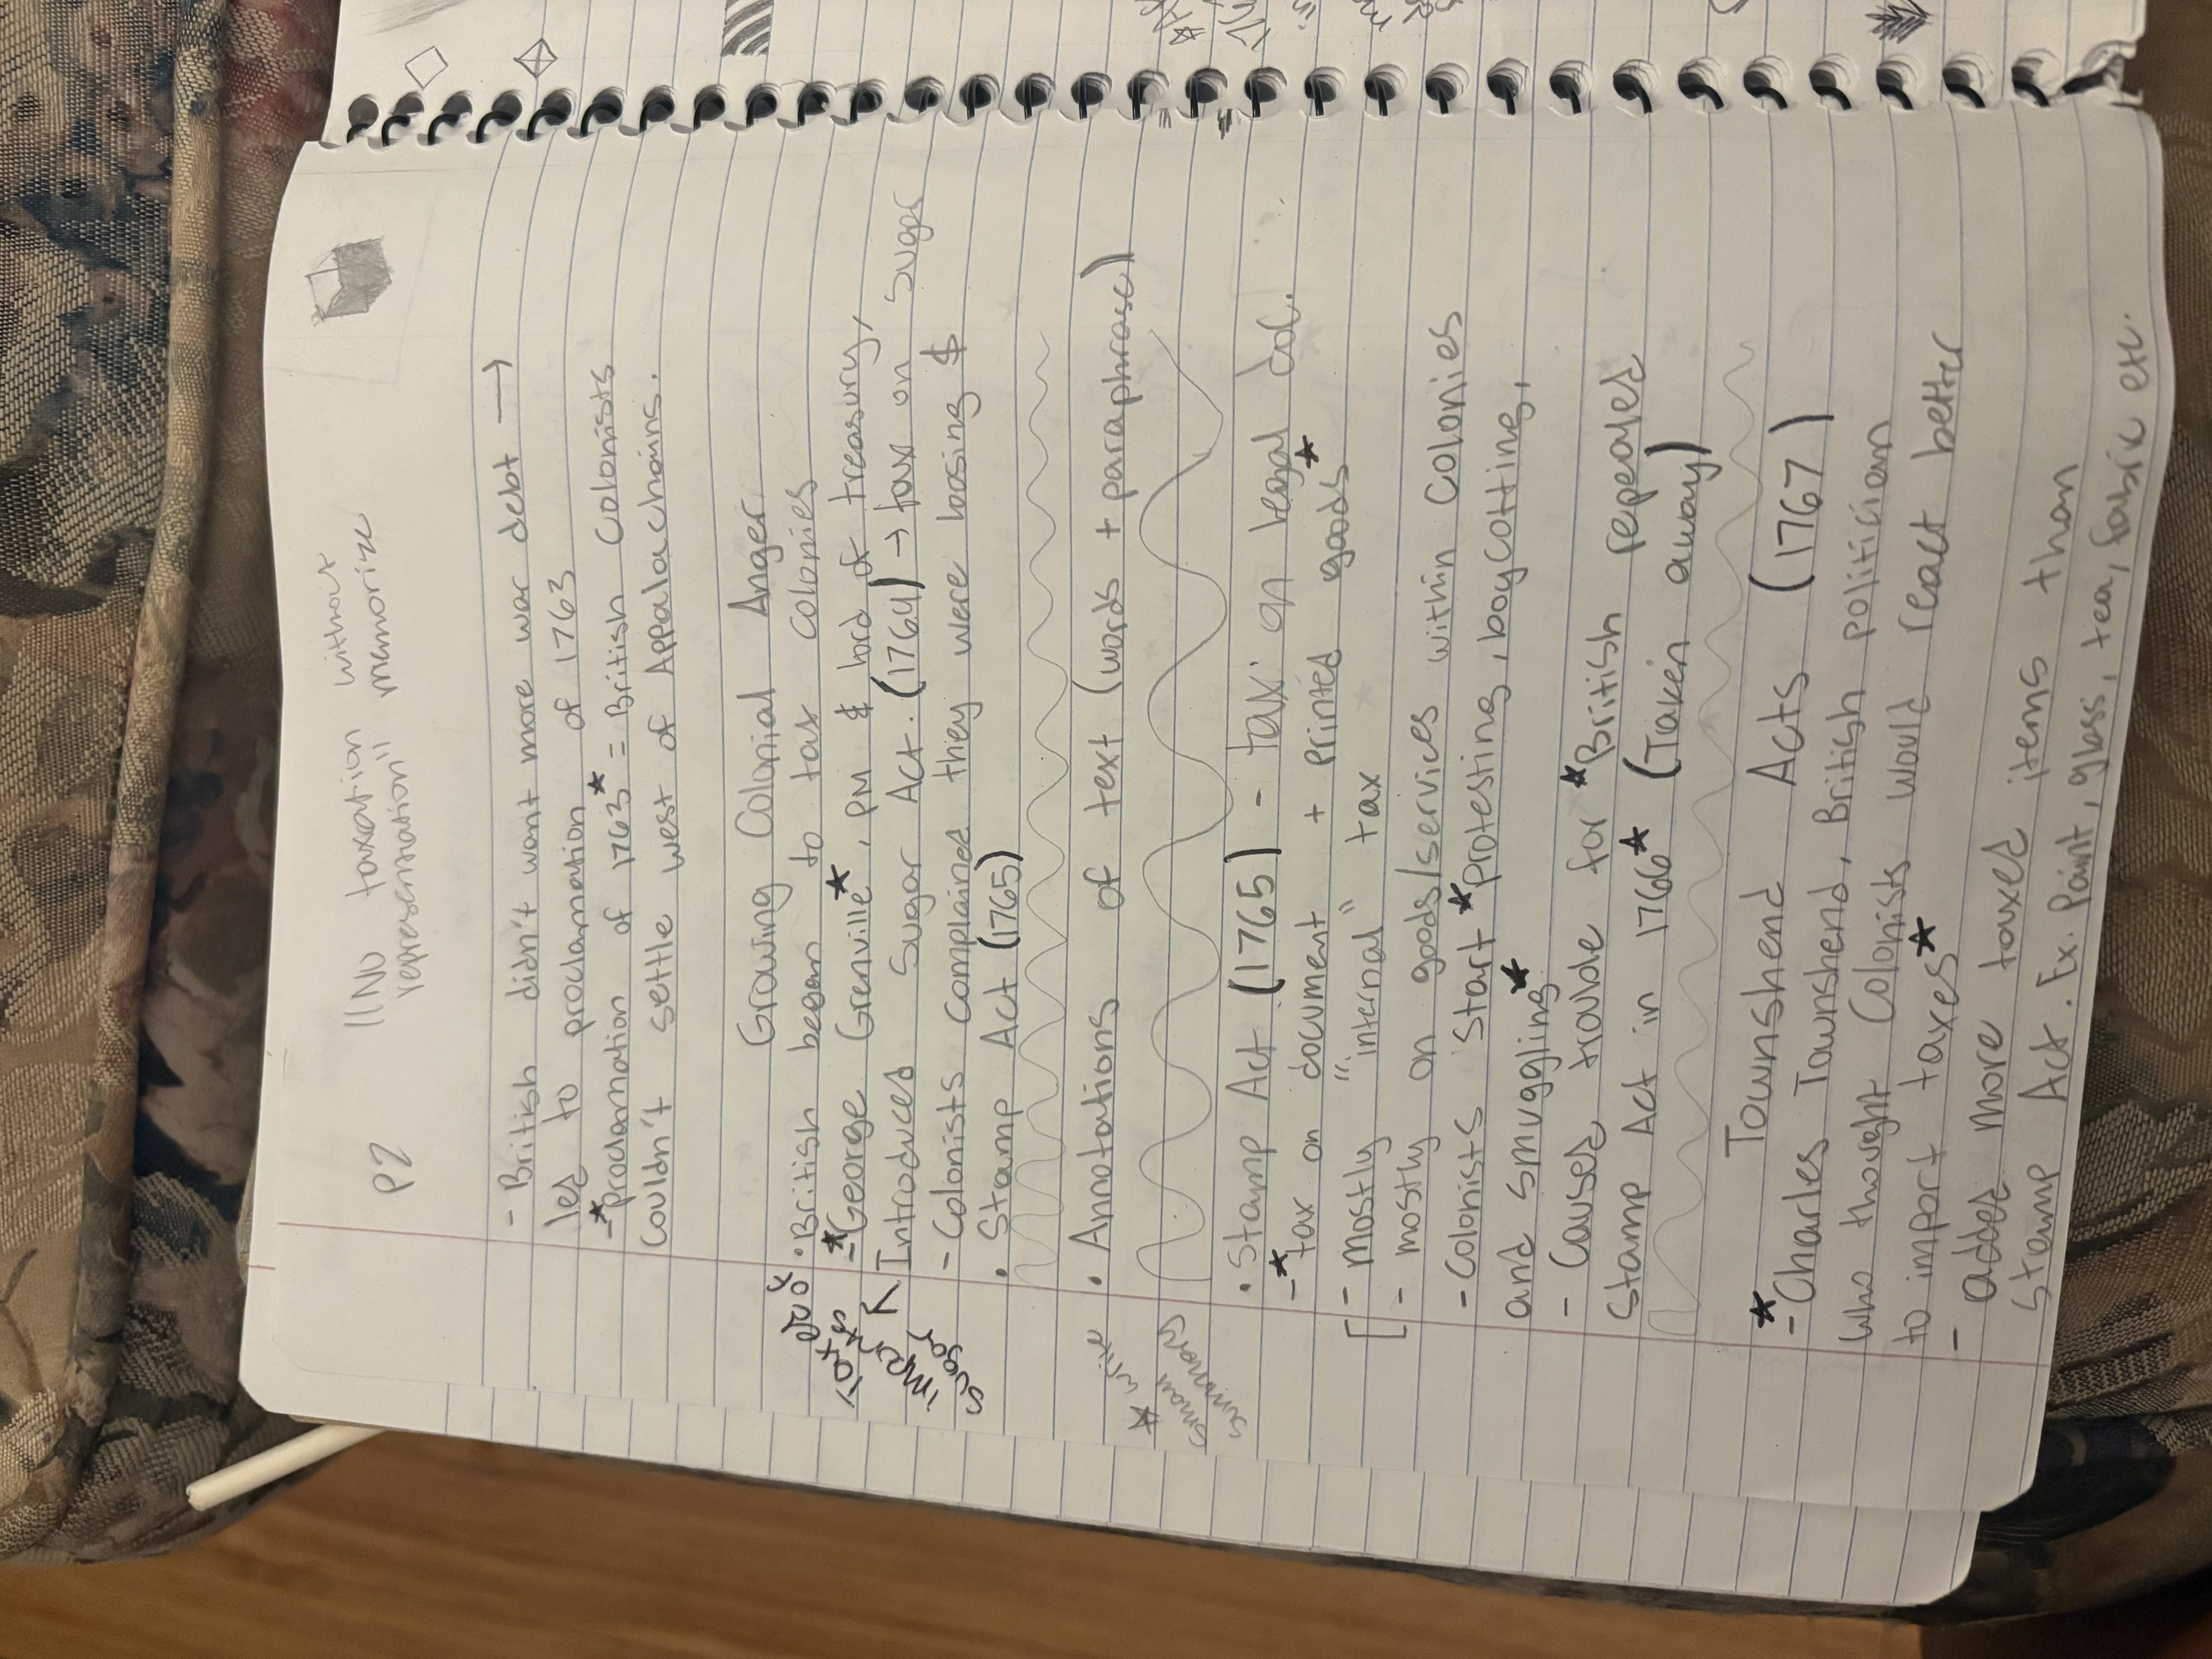 P2 "No taxation without
representation" memorize
- British didn't want more war debt →
led to proclamation of 1763
-*proclamation of 1763* = British Colonists
couldn't settle west of Appalachains.
Growing Colonial Anger
• British began to tax colonies
-*George Grenville*, PM & lord of treasury,
Introduced Sugar Act. (1764) → tax on sugar
- Colonists complained they were loosing $
• Stamp Act (1765)
• Annotations of text (words + paraphrase)
* write
small
summary
• Stamp Act (1765) - tax on legal doc.
-*tax on document + printed goods*
- mostly "internal" tax
- mostly on goods/services within colonies
- Colonists start *protesting, boycotting,
and smuggling*
- Caused trouble for *British repealed
Stamp Act in 1766* (Taken away)
Townshend Acts (1767)
-*Charles Townshend, British politician
who thought Colonists would react better
to import taxes*
- added more taxed items than
Stamp Act. Ex. Paint, glass, tea, fabric etc.